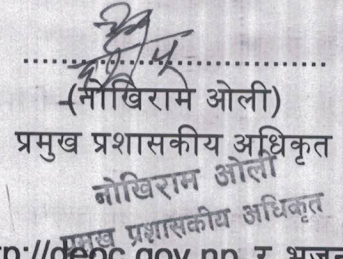 (नोखिराम ओली)
प्रमुख प्रशासकीय अधिकृत
नोखिराम ओली
प्रमुख प्रशासकीय अधिकृत
p://deoc.gov.np र भुजन